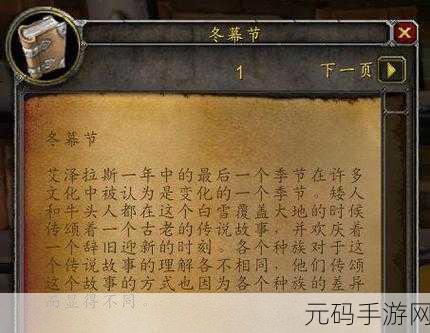 冬幕节
1
下一页
冬幕节
艾泽拉斯一年中的最后一个季节在许多
文化中被认为是变化的一个季节。矮人
和牛头人都在这个白雪覆盖大地的时候
传颂着一个古老的传说故事，并欢庆着
一个辞旧迎新的时刻。各个种族对于这
个传说故事的理解各不相同，他们传颂
这个故事的方式也因为各个种族的差异
而显得不同。
元码手游网